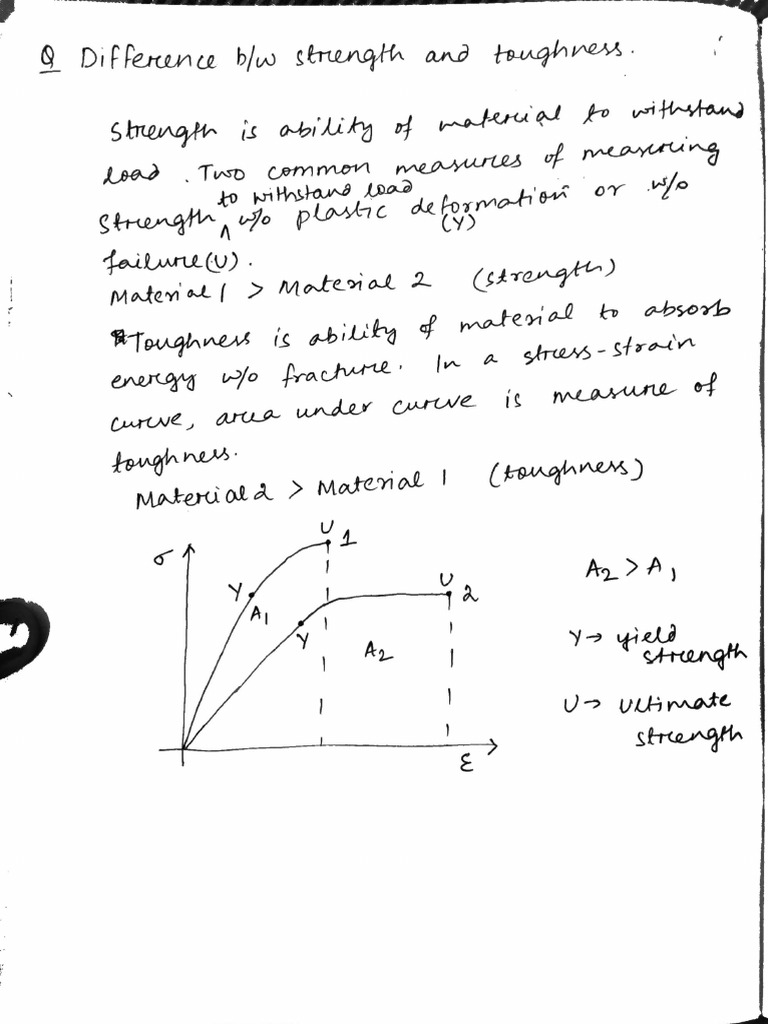 Q Difference b/w strength and toughness.
Strength is ability of material to withstand
load. Two common measures of measuring
to withstand load
Strength ^ w/o plastic deformation or w/o
(Y)
failure (U).
Material 1 > Material 2 (strength)
Toughness is ability of material to absorb
energy w/o fracture. In a stress-strain
curve, area under curve is measure of
toughness.
Material 2 > Material 1 (toughness)
σ
U 1
Y
A1
U 2
Y
A2
ε
A2 > A1
Y → yield
strength
U → Ultimate
strength